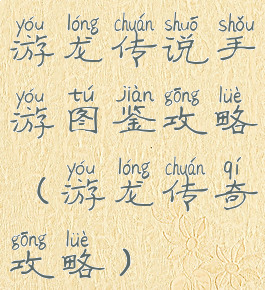 yóu lóng chuán shuō shǒu
游龙传说手
yóu tú jiàn gōng lüè
游图鉴攻略
yóu lóng chuán qí
（游龙传奇
gōng lüè
攻略）